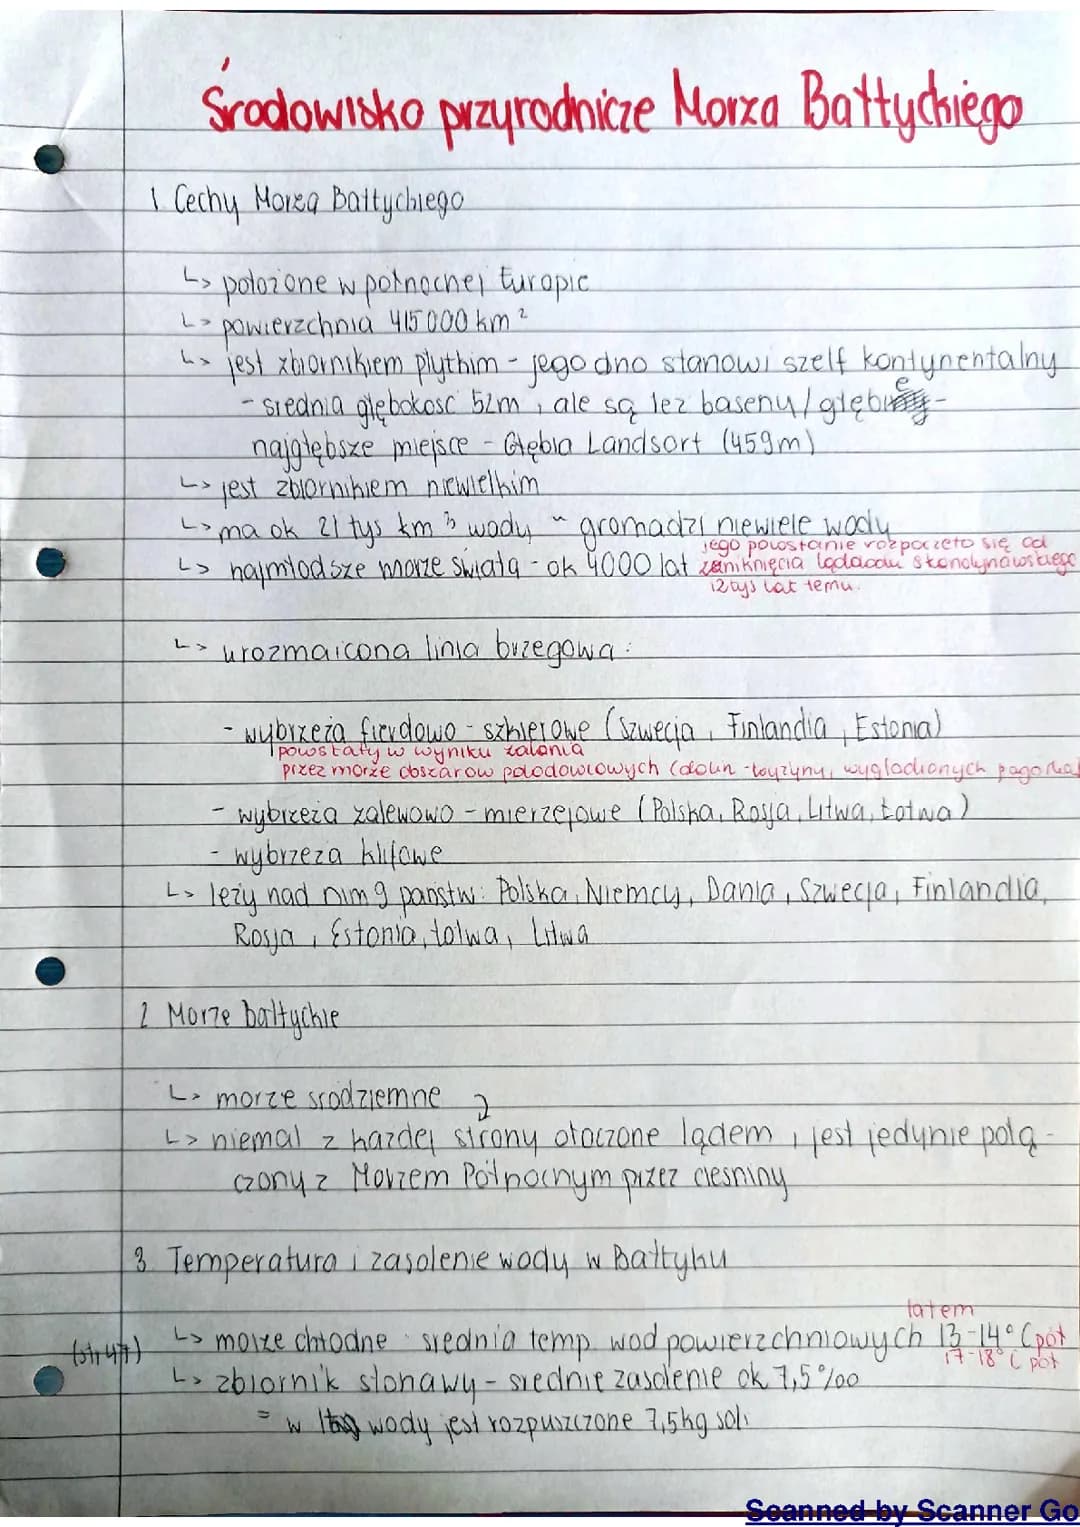 Środowisko przyrodnicze Morza Bałtyckiego
1 Cechy Morza Bałtyckiego
↳ położone w północnej Europie
↳ powierzchnia 415 000 km²
↳ jest zbiornikiem płytkim - jego dno stanowi szelf kontynentalny
- srednia głębokosc 52m , ale są tez baseny / głębie -
najgłębsze miejsce - Głębia Landsort (459m)
↳ jest zbiornikiem niewielkim
↳ ma ok 21 tys km³ wody - gromadzi niewiele wody
↳ najmłodsze morze swiata - ok 4000 lat
jego powstanie rozpoczęto się od
zaniknięcia lądolodu skandynawskiego
12 tys lat temu.
↳ urozmaicona linia brzegowa :
- wybrzeża fierdowo - szkierowe (Szwecja , Finlandia , Estonia)
powstały w wyniku zalania
przez morze obszarów polodowcowych (dolin
wygładzonych
- wybrzeża zalewowo - mierzejowe (Polska, Rosja, Litwa, Łotwa)
- wybrzeza klifowe
↳ leży nad nim 9 panstw: Polska, Niemcy, Dania , Szwecja , Finlandia,
Rosja , Estonia, Łotwa , Litwa
2 Morze bałtyckie
↳ morze srodziemne
↳ niemal z kazdej strony otoczone lądem , jest jedynie połą -
czony z Morzem Północnym przez ciesniny
3. Temperatura i zasolenie wody w Bałtyku
latem
(str 47)
↳ morze chłodne : srednia temp. wod powierzchniowych 13-14° C pół
17-18° C poł
↳ zbiornik słonawy - srednie zasolenie ok 7,5‰
= w wody jest rozpuszczone 7,5kg soli
Scanned by Scanner Go